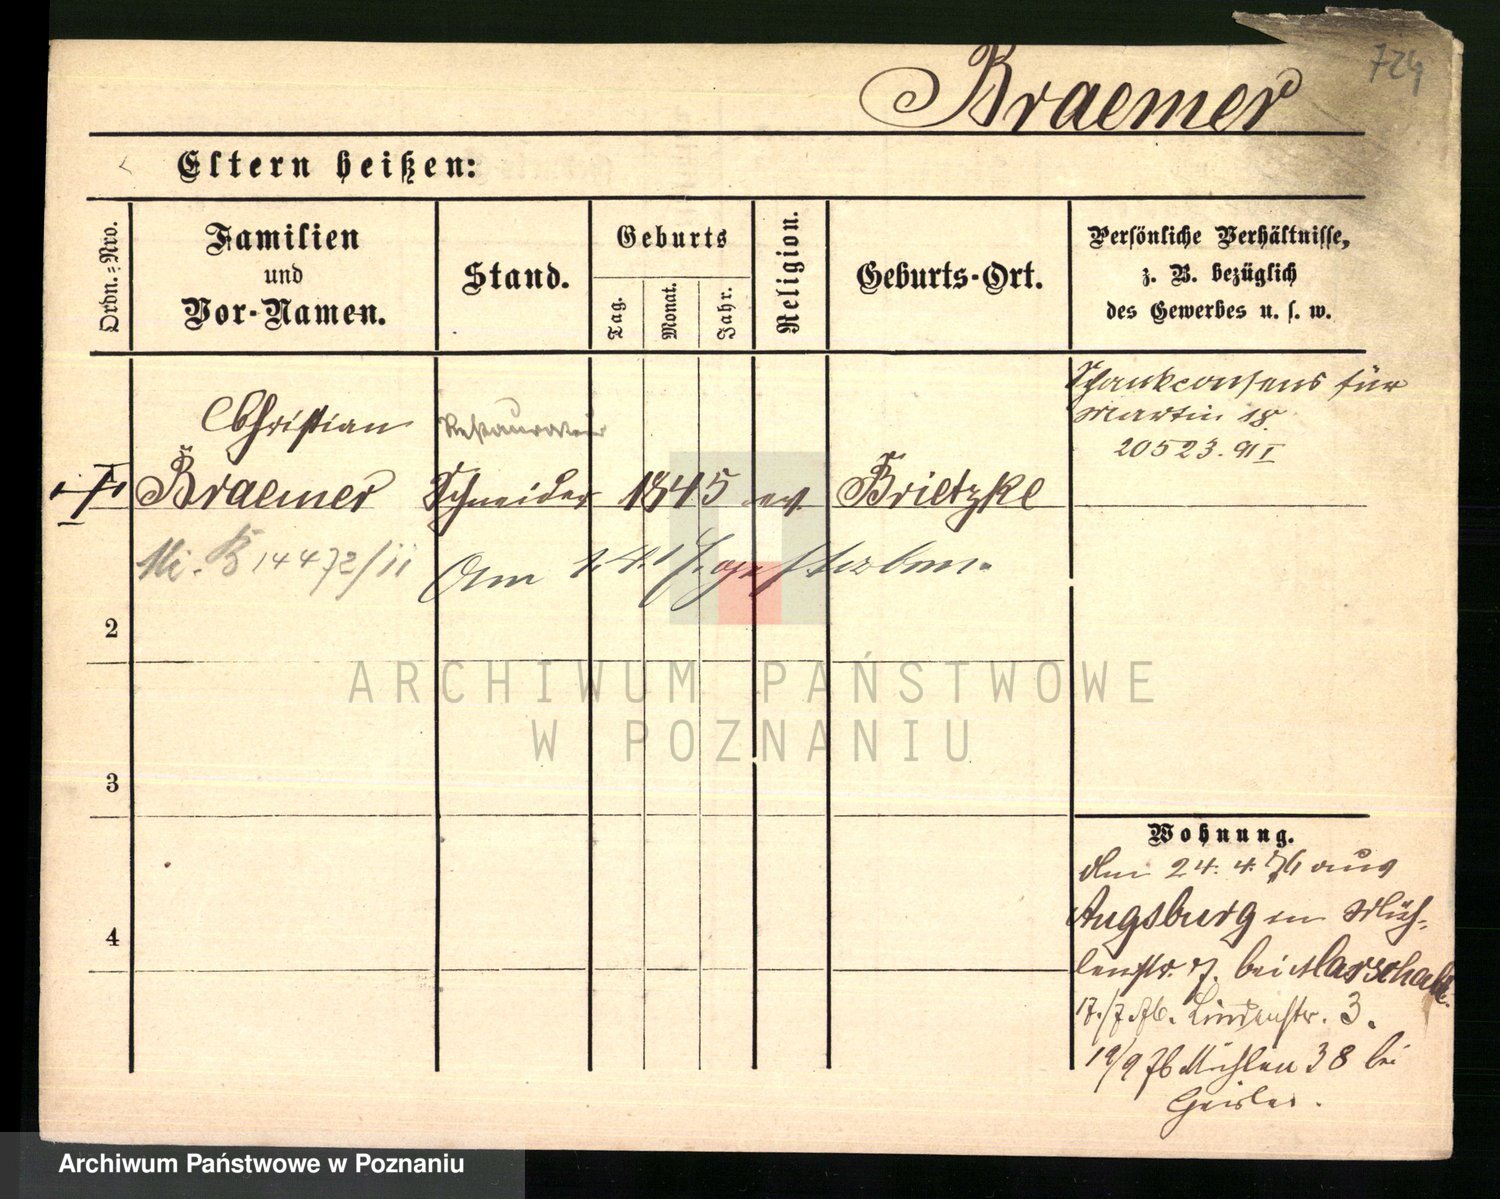 724
Braemer
Eltern heißen:
Ordn.=Nro.
Familien
und
Vor-Namen.
Stand.
Geburts
Tag.
Monat.
Jahr.
Religion.
Geburts-Ort.
Persönliche Verhältnisse,
z. B. bezüglich
des Gewerbes u. s. w.
Christian
Braemer
Restaurateur
Schneider
1845
ev.
Brietzke
Schankconsens für
Martin 18
20523. 91 I
14472/II
Am gestorben.
2
3
4
ARCHIWUM PAŃSTWOWE
W POZNANIU
Wohnung.
den 24. 4. 76 aus
Augsburg in Müh-
lenstr. 7. bei Marschall.
17./7.76. Lindenstr. 3.
19/9 76 Mühlen 38 bei
Geisler.
Archiwum Państwowe w Poznaniu